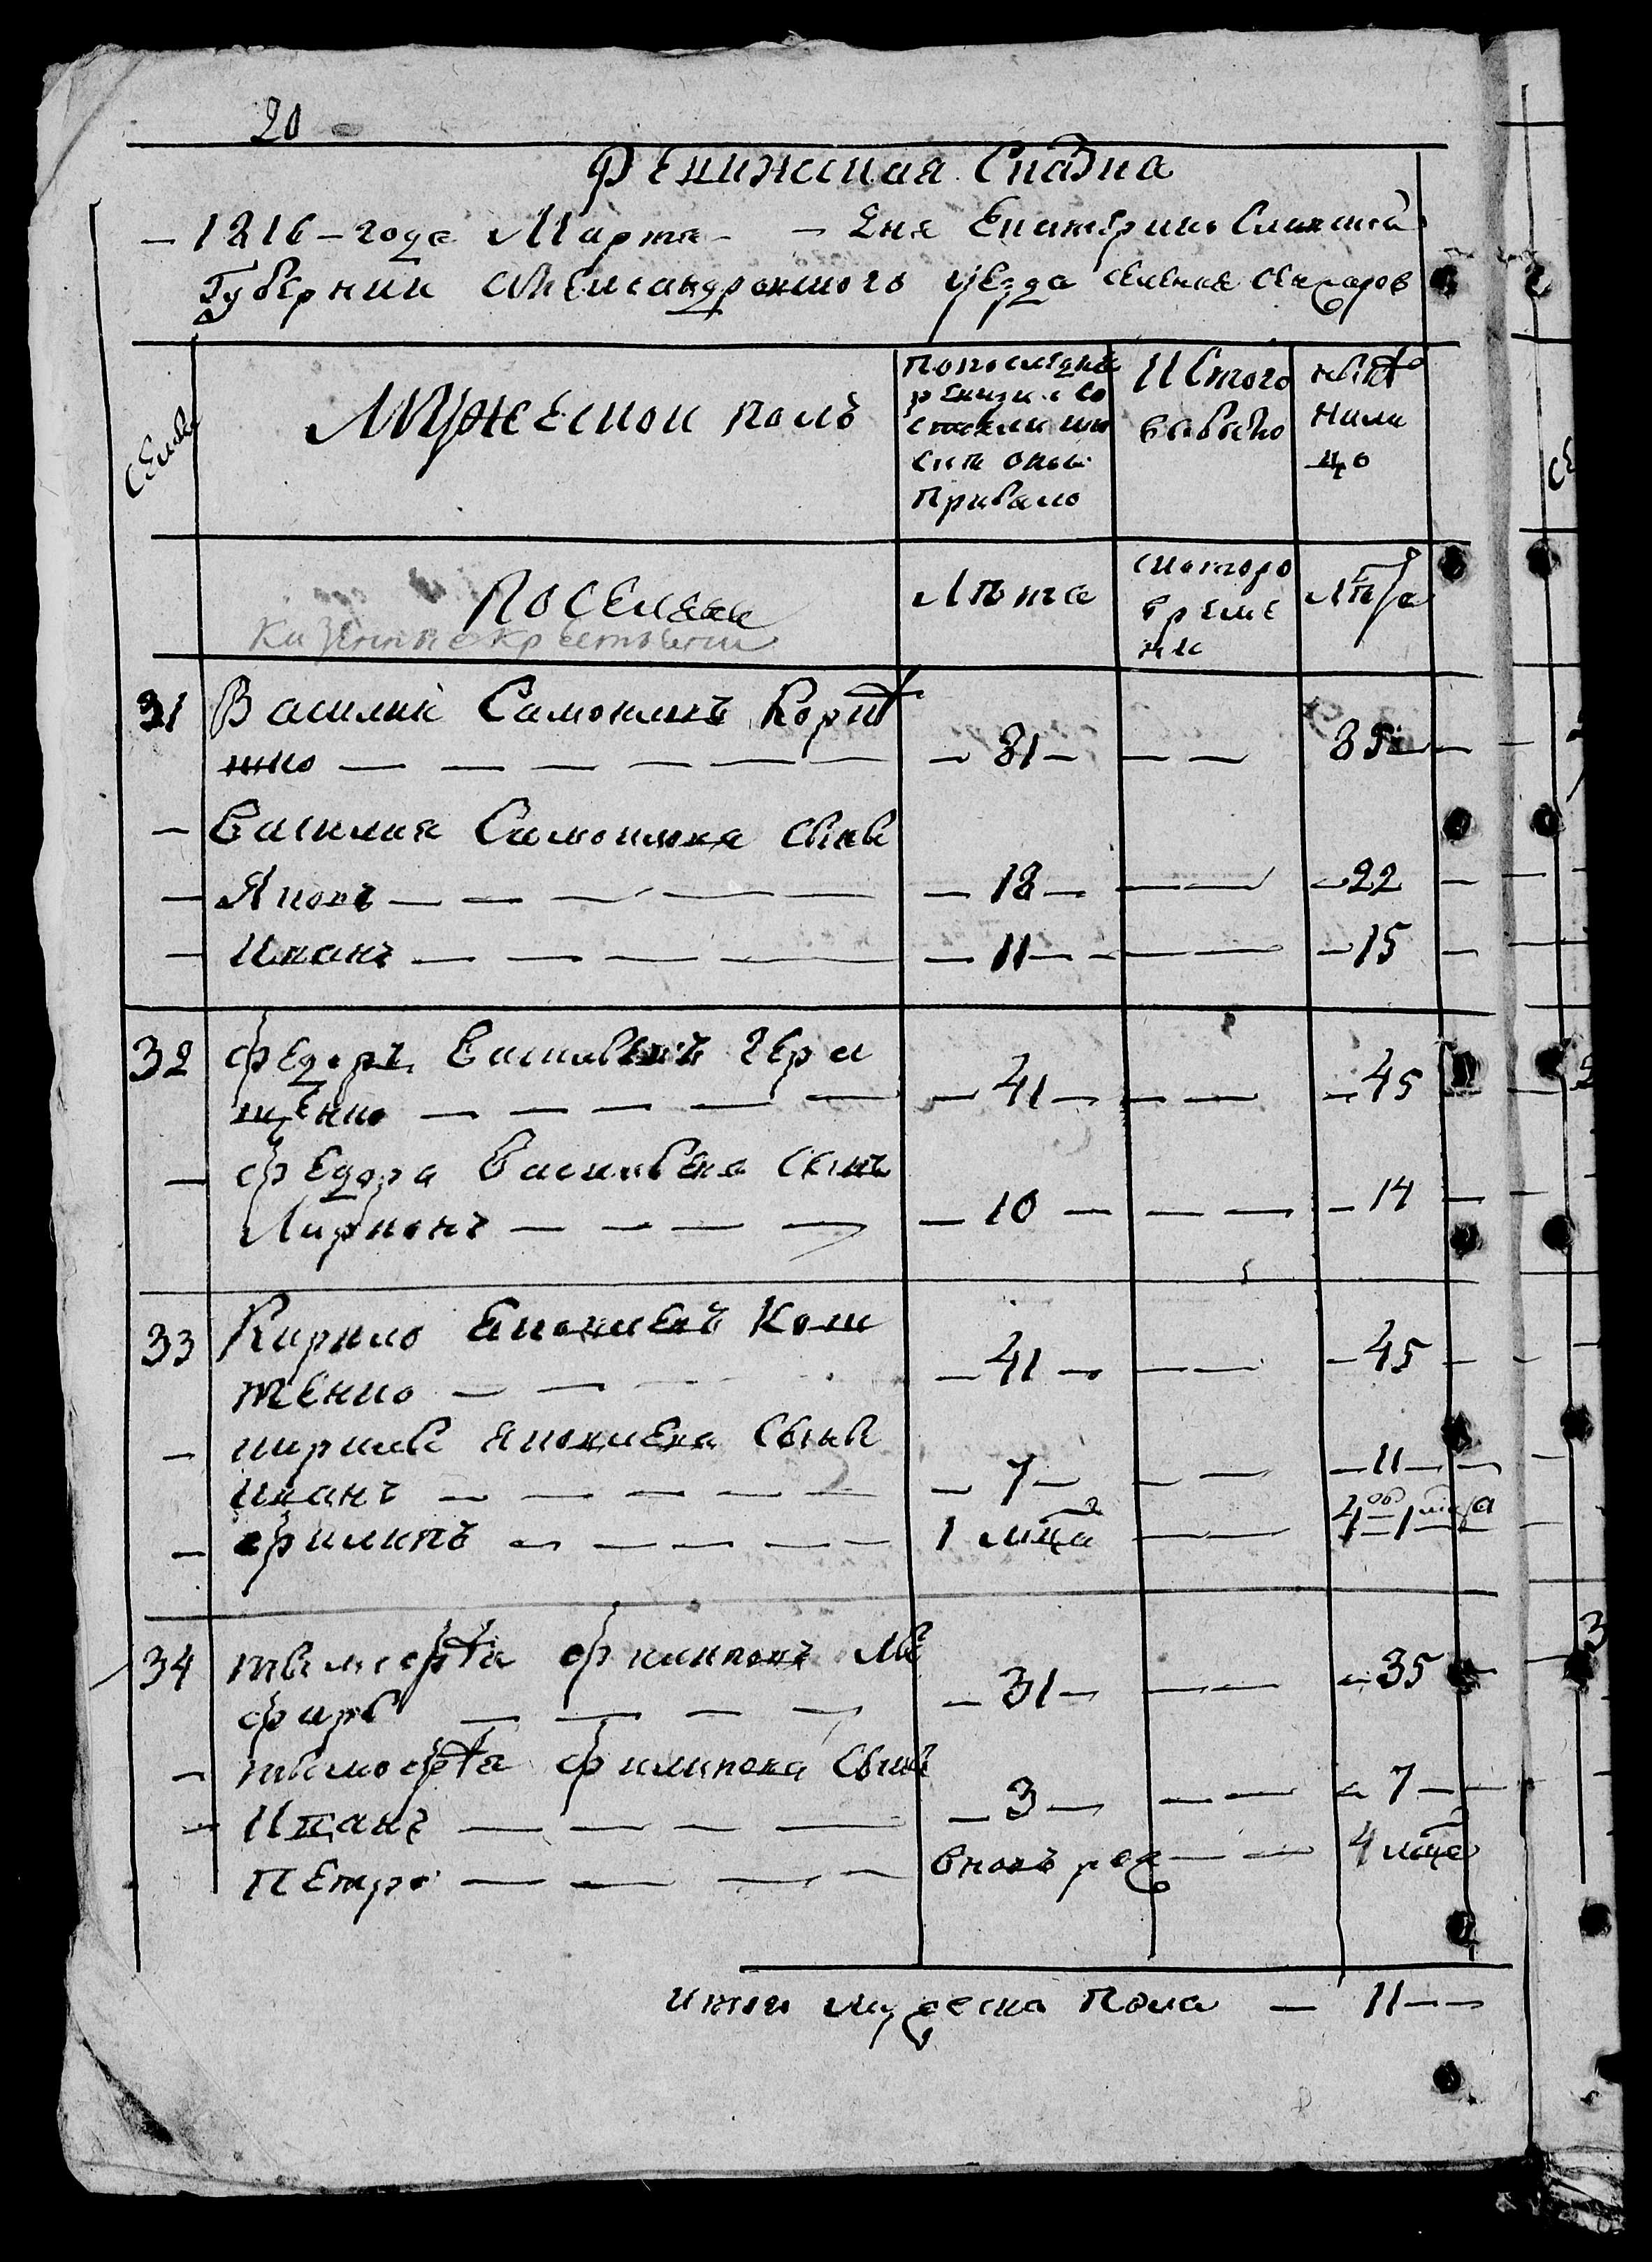 20
Ревижская Сказка
1816 года Марта дня Екатеринославской
Губернии Александровского уезда селения
семьи
Мужескои полъ
По последней
ревизии со
стояло и по
сле оной
Прибыло
Из того
выбыло
ныне
на ли
цо
Поселяне
Казенные крестьяне
Лета
с которо
времє
ни
Лета
31 Василий Самойловъ
— 31 — — — 35
Василия Самойлова сыны
Яковъ — 18 — — — 22
Иванъ — 11 — — — 15
32 Федоръ Васильевъ Гера
щенко — 41 — — — 45
Федора Васильева сынъ
Ларионъ — 10 — — — 14
33 Кирило Яковлевъ Кош
тенко — 41 — — — 45
Кирила Яковлева сыны
Иванъ — 7 — — — 11
Филипъ — 1 мца — —
34 тимофей Филиповъ
— 31 — — — 35
тимофея Филипова сыны
Иванъ — 3 — — — 7
Петро — вновь рож — — 4 мца
итого мужеска Пола — 11